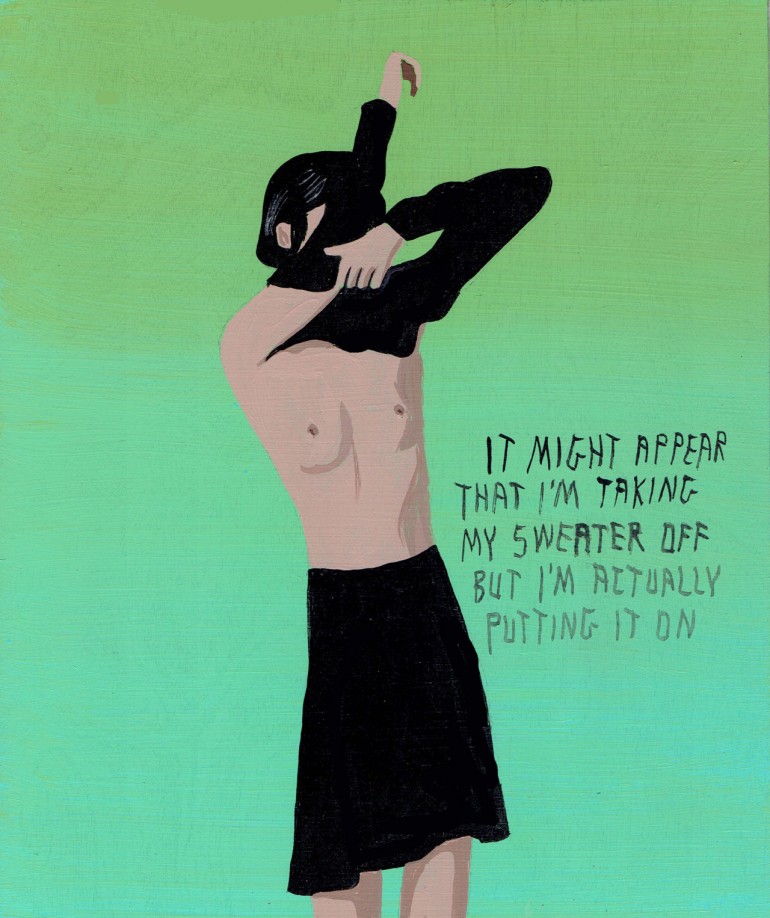 IT MIGHT APPEAR
THAT I'M TAKING
MY SWEATER OFF
BUT I'M ACTUALLY
PUTTING IT ON